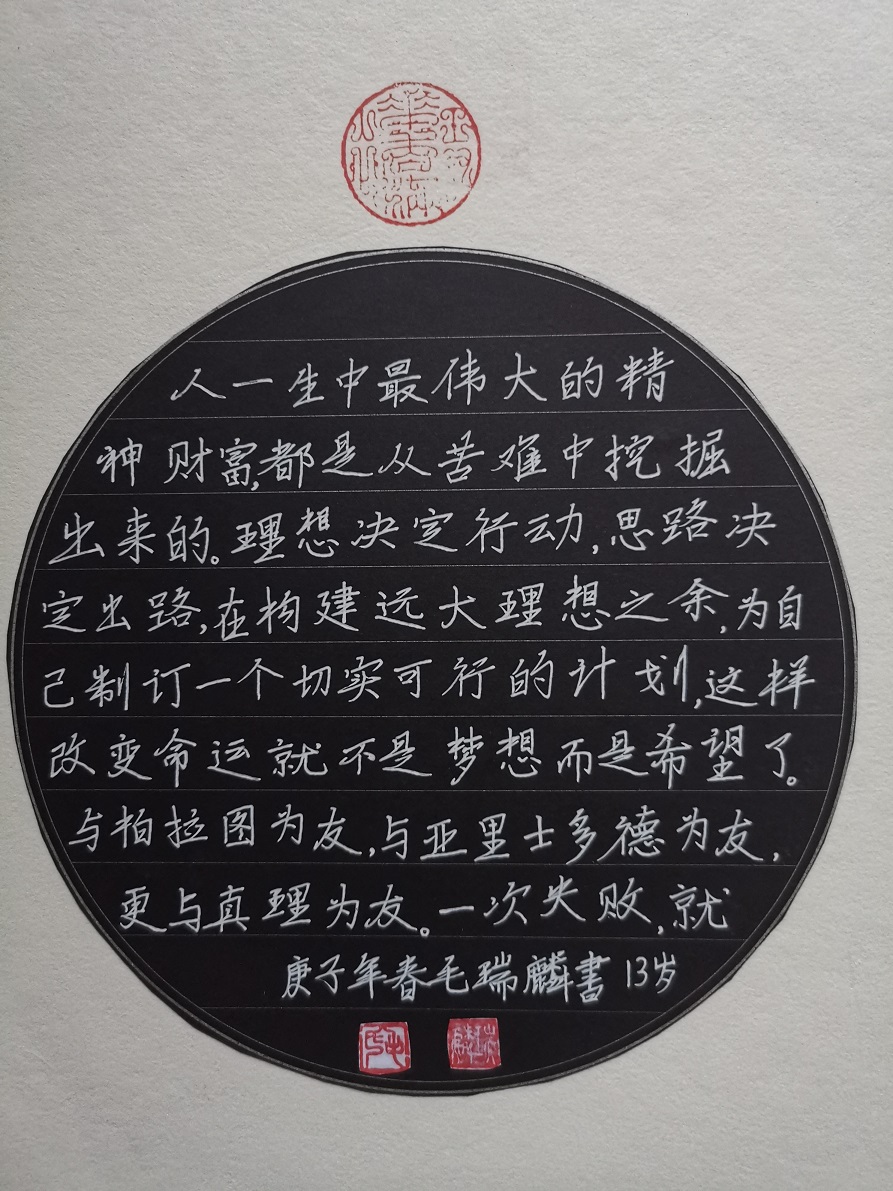 人一生中最伟大的精
神财富,都是从苦难中挖掘
出来的。理想决定行动,思路决
定出路,在构建远大理想之余,为自
己制订一个切实可行的计划,这样
改变命运就不是梦想而是希望了。
与柏拉图为友,与亚里士多德为友,
更与真理为友。一次失败,就
庚子年春毛瑞麟書 13岁